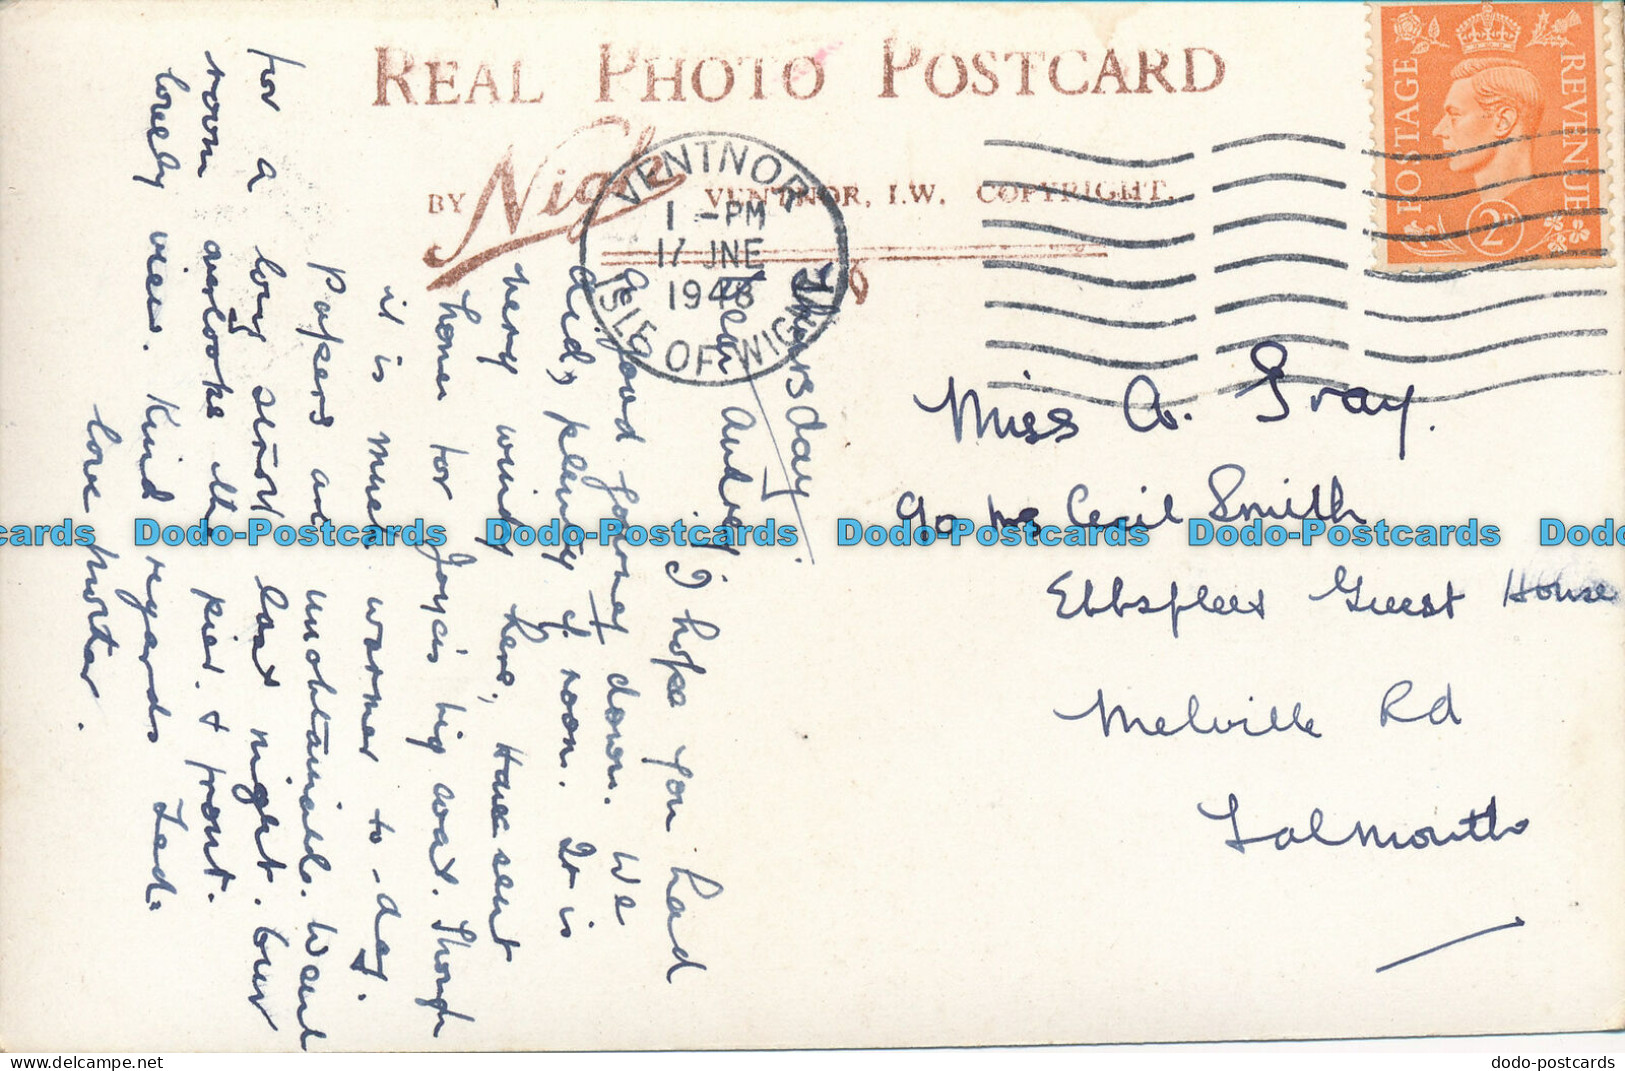 REAL PHOTO POSTCARD
BY Nigh VENTNOR, I.W. COPYRIGHT.
VENTNOR
1 - PM
17 JNE
1948
ISLE OF WIGHT
POSTAGE REVENUE
2D
Thursday.
Dear Audrey,
I hope you had
a good journey down. We
did, plenty of room. It is
very windy here, Have sent
home for Joyce's big coat. Though
it is much warmer to-day.
Papers are unobtainable. Went
for a long stroll last night. Our
room overlooks the pier. & front.
lovely view. Kind regards Ted.
love
Miss A. Gray.
c/o Mrs Cecil Smith
Ebbsfleet Guest House
Melville Rd
Falmouth
Dodo-Postcards Dodo-Postcards Dodo-Postcards Dodo-Postcards Dodo-Postcards
dodo-postcards